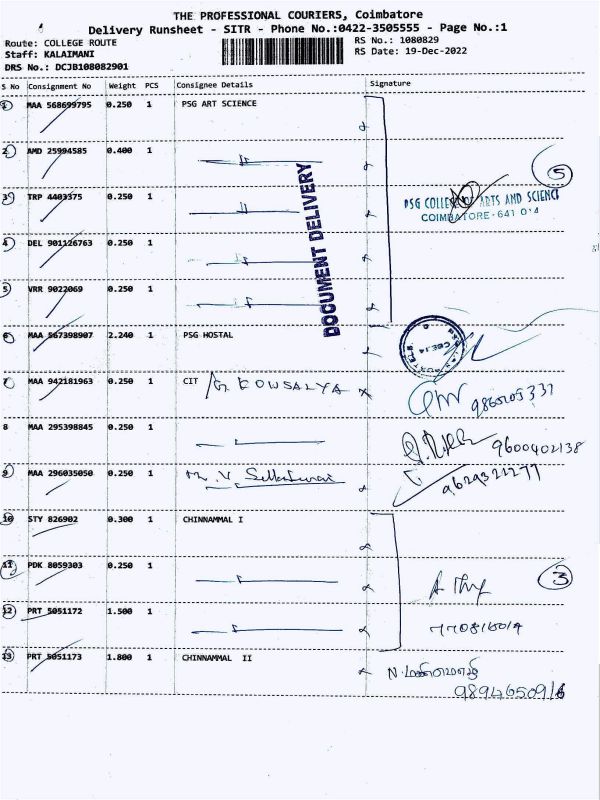 THE PROFESSIONAL COURIERS, Coimbatore
Delivery Runsheet - SITR - Phone No.:0422-3505555 - Page No.:1
Route: COLLEGE ROUTE
RS No.: 1080829
Staff: KALAIMANI
RS Date: 19-Dec-2022
DRS No.: DCJB108082901
S No Consignment No Weight PCS Consignee Details Signature
1 MAA 568699795 0.250 1 PSG ART SCIENCE
2 AMD 25994585 0.400 1
5
3 TRP 4403375 0.250 1
PSG COLLEGE OF ARTS AND SCIENCE
COIMBATORE - 641 014
DOCUMENT DELIVERY
4 DEL 901126763 0.250 1
5 VRR 9022069 0.250 1
6 MAA 567398907 2.240 1 PSG HOSTAL
7 MAA 942181963 0.250 1 CIT G KOWSALYA
8 MAA 295398845 0.250 1
9600402138
9 MAA 296035050 0.250 1 Mr. V.
9629321277
10 STY 826902 0.300 1 CHINNAMMAL I
11 PDK 8059303 0.250 1
3
12 PRT 5051172 1.500 1
13 PRT 5051173 1.800 1 CHINNAMMAL II